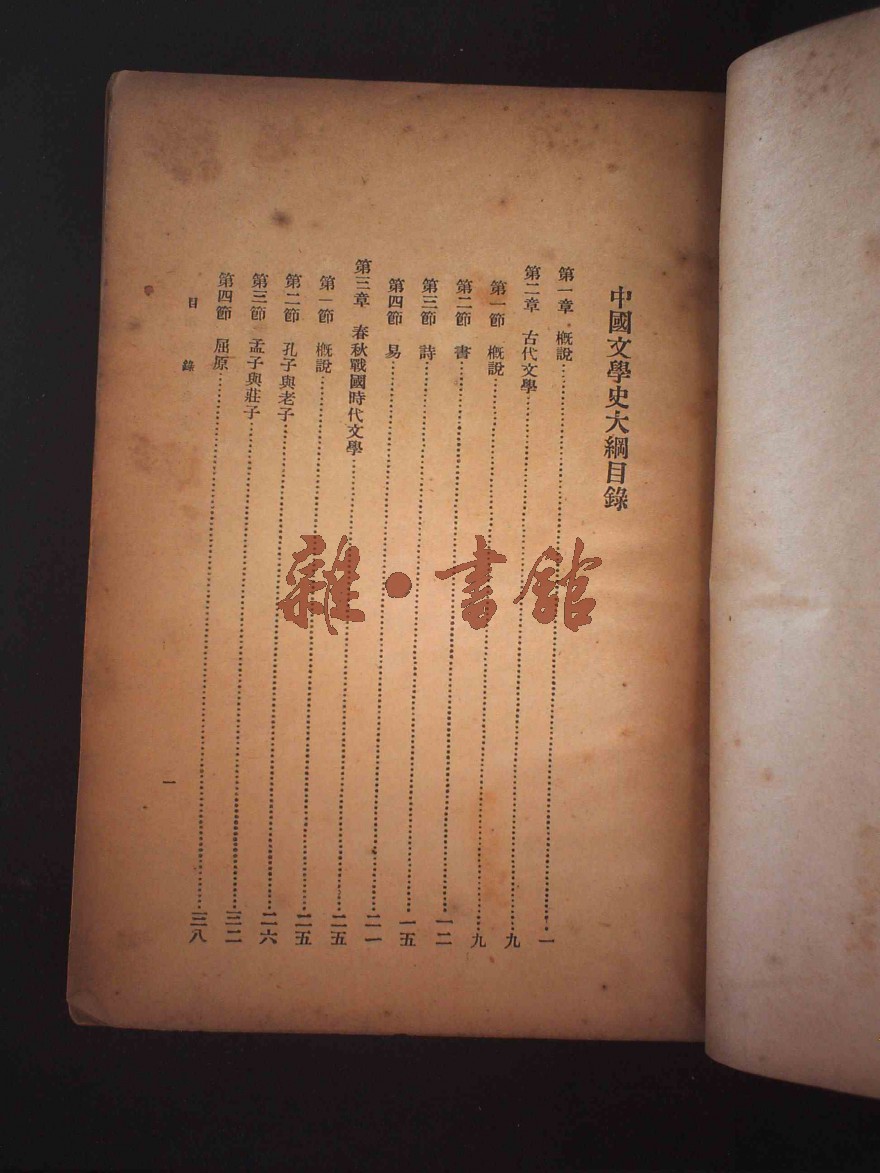 中國文學史大綱目錄
第一章 概說…………一
第二章 古代文學…………九
第一節 概說…………九
第二節 書…………一二
第三節 詩…………一五
第四節 易…………二一
第三章 春秋戰國時代文學…………二五
第一節 概說…………二五
第二節 孔子與老子…………二六
第三節 孟子與莊子…………三二
第四節 屈原…………三八
目錄
一
雜·書館